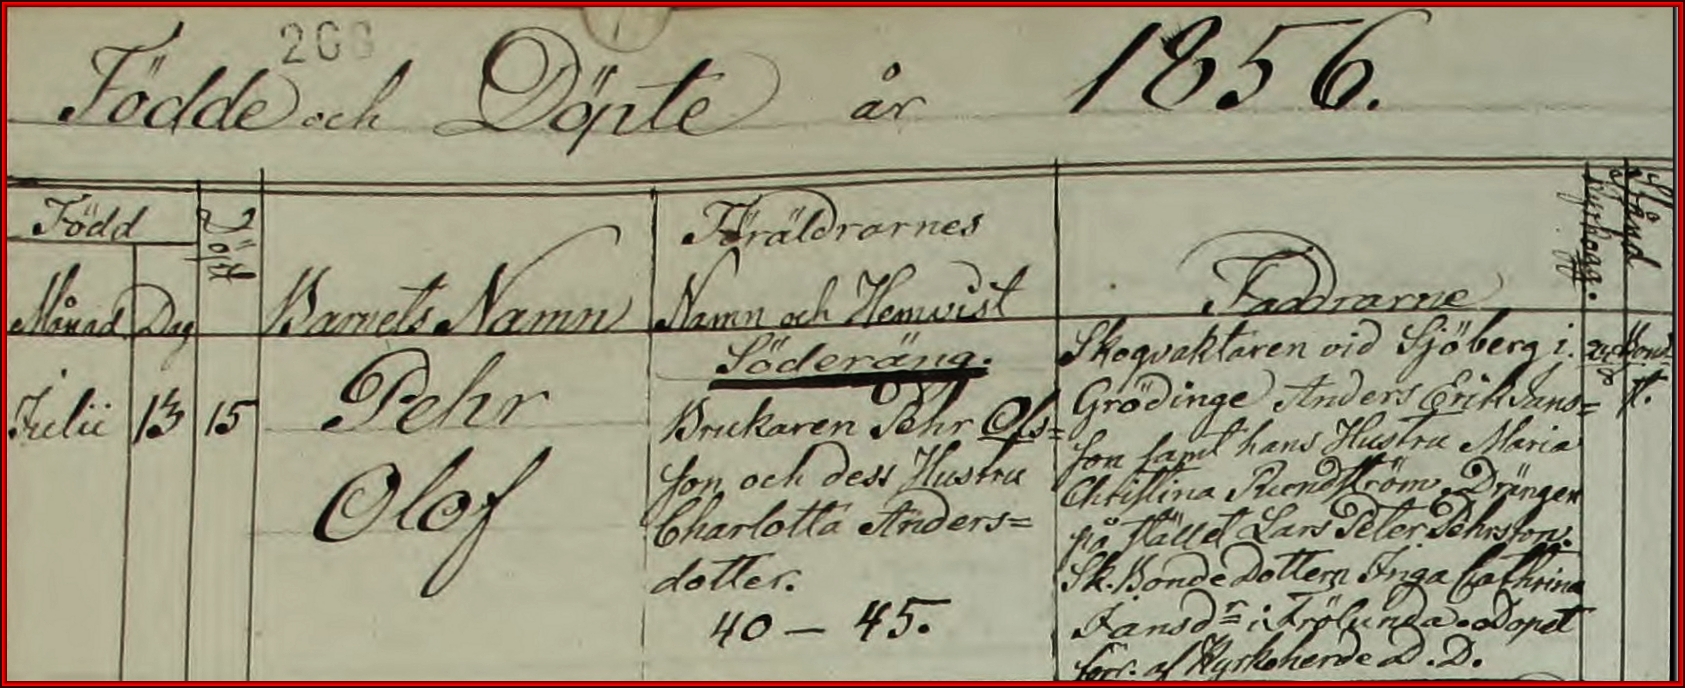 Födde och Döpte år 1856.
Född
Döpt
Månad Dag
Barnets Namn
Föräldrarnes
Namn och Hemvist
Faddrarne
Kyrkotag.
Stånd
Julii 13 15
Pehr
Olof
Söderäng.
Brukaren Pehr Ols=
son och dess Hustru
Charlotta Anders=
dotter.
40 — 45.
Skogvaktaren vid Sjöberg i
Grödinge Anders Erik Jans=
son samt hans Hustru Maria
Christina Rundström. Drängen
på stället Lars Peter Pehrsson.
Sk. Bonde Dottern Inga Cathrina
Jansdr i Frölunda. Dopet
förr. af Kyrkoherde D. D.